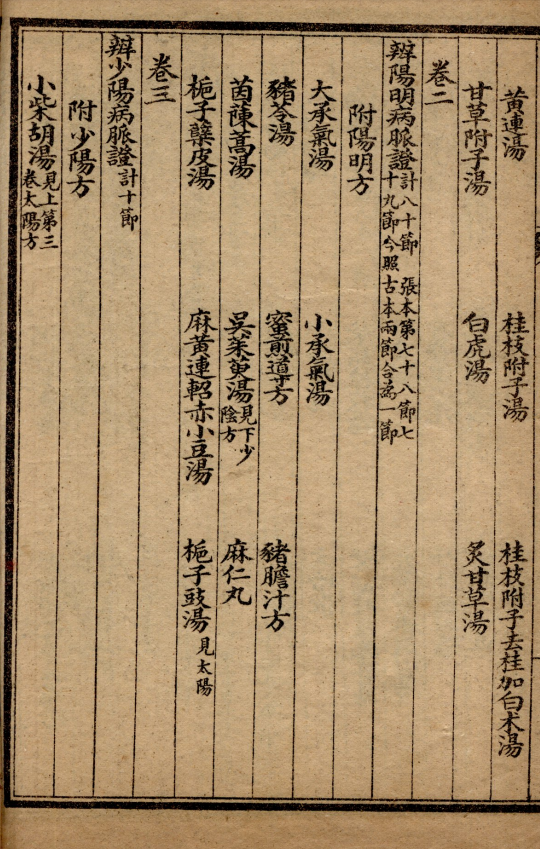 黃連湯 桂枝附子湯 桂枝附子去桂加白术湯
甘草附子湯 白虎湯 炙甘草湯
卷二
辨陽明病脈證計八十節 張本第七十八節七十九節今照古本兩節合為一節
附陽明方
大承氣湯 小承氣湯
豬苓湯 蜜煎導方 豬膽汁方
茵蔯蒿湯 吳茱萸湯見下少陰方 麻仁丸
梔子蘗皮湯 麻黃連軺赤小豆湯 梔子豉湯見太陽
卷三
辨少陽病脈證計十節
附少陽方
小柴胡湯見上第三卷太陽方